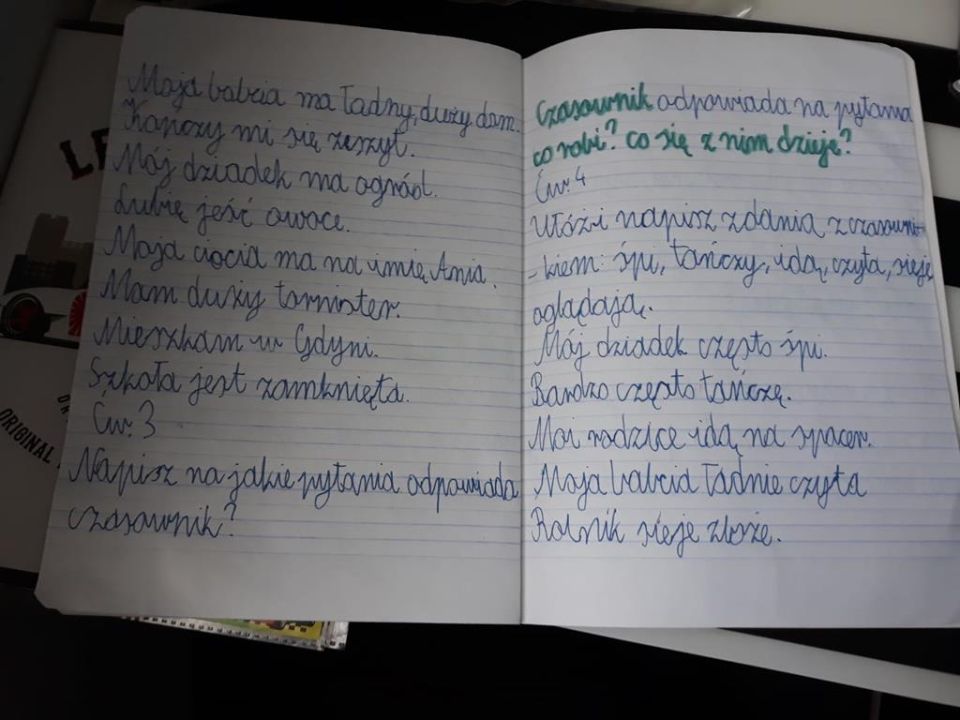 Moja babcia ma ładny, duży dom.
Kończy mi się zeszyt.
Mój dziadek ma ogród.
Lubię jeść owoce.
Moja ciocia ma na imię Ania.
Mam duży tornister.
Mieszkam w Gdyni.
Szkoła jest zamknięta.
Ćw. 3
Napisz na jakie pytania odpowiada
czasownik?
Czasownik odpowiada na pytania
co robi? co się z nim dzieje?
Ćw. 4
Ułóż i napisz zdania z czasowni-
-kiem: śpi, tańczy, idą, czyta, sieje,
oglądają.
Mój dziadek często śpi.
Bardzo często tańczę.
Moi rodzice idą na spacer.
Moja babcia ładnie czyta
Rolnik sieje zboże.
ORIGINAL